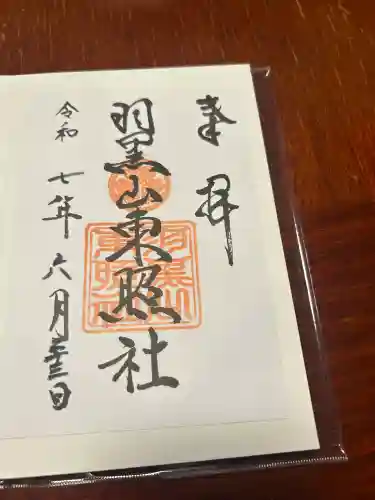 奉拝
羽黒山東照社
令和七年六月二十三日